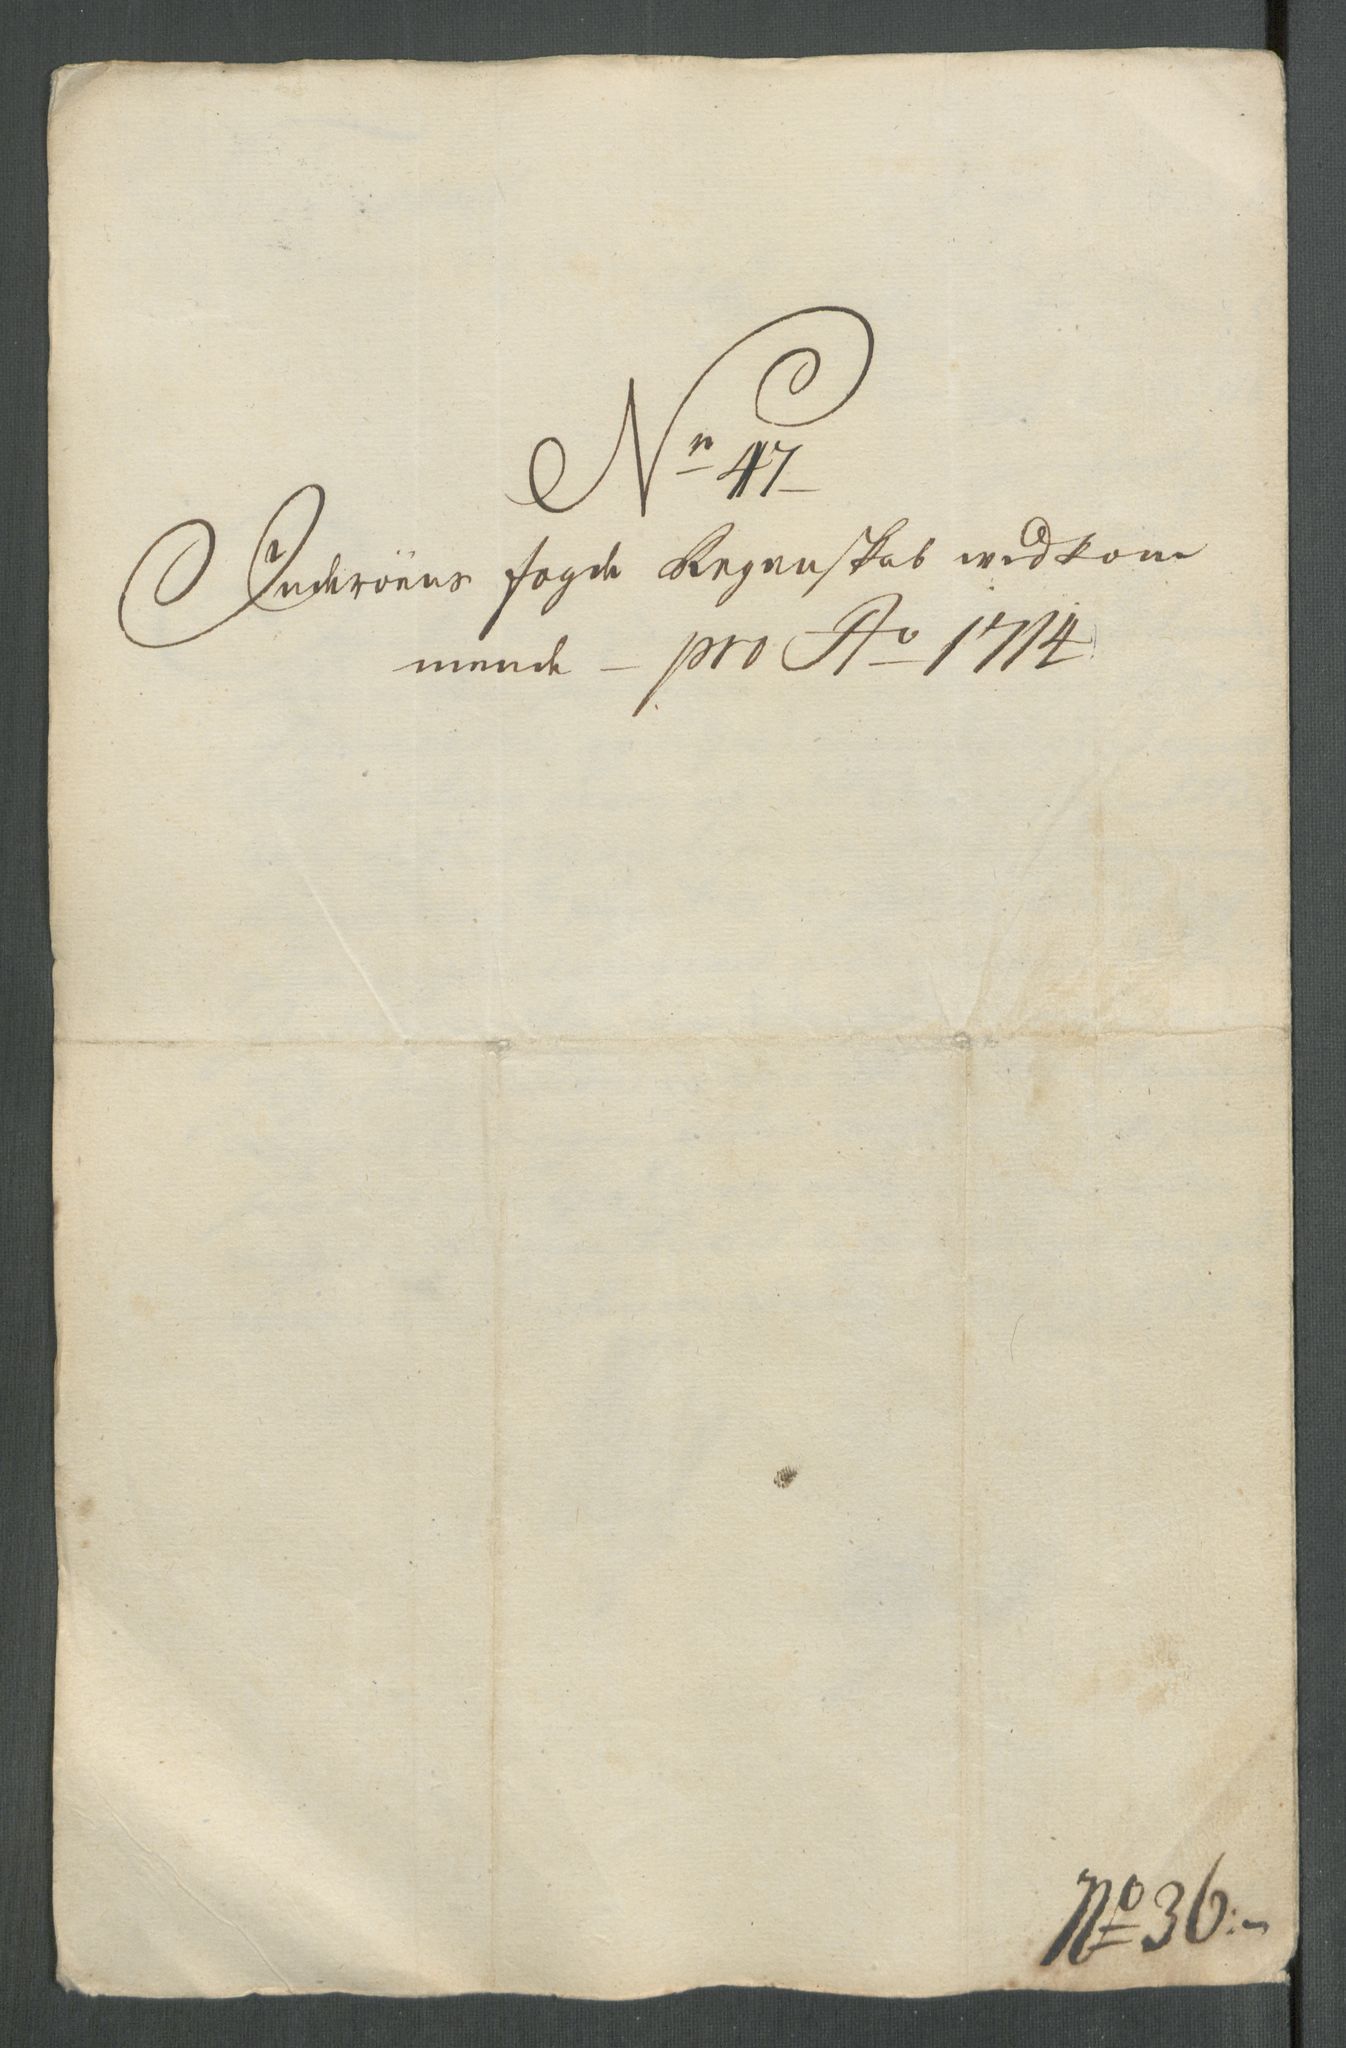 Nr 47
Inderöens fogde Regenskab wedkom
mende - pro Ao 1714
No 36:-